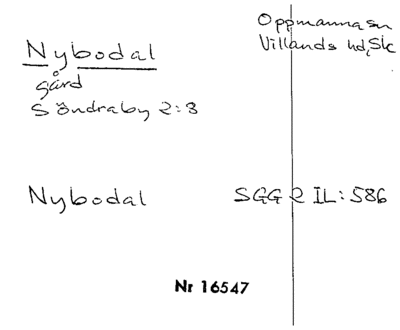 Nybodal
gård
Söndraby 2:3
Oppmanna sn
Villands hd, Sk
Nybodal
SGG 2 IL: 586
Nr 16547